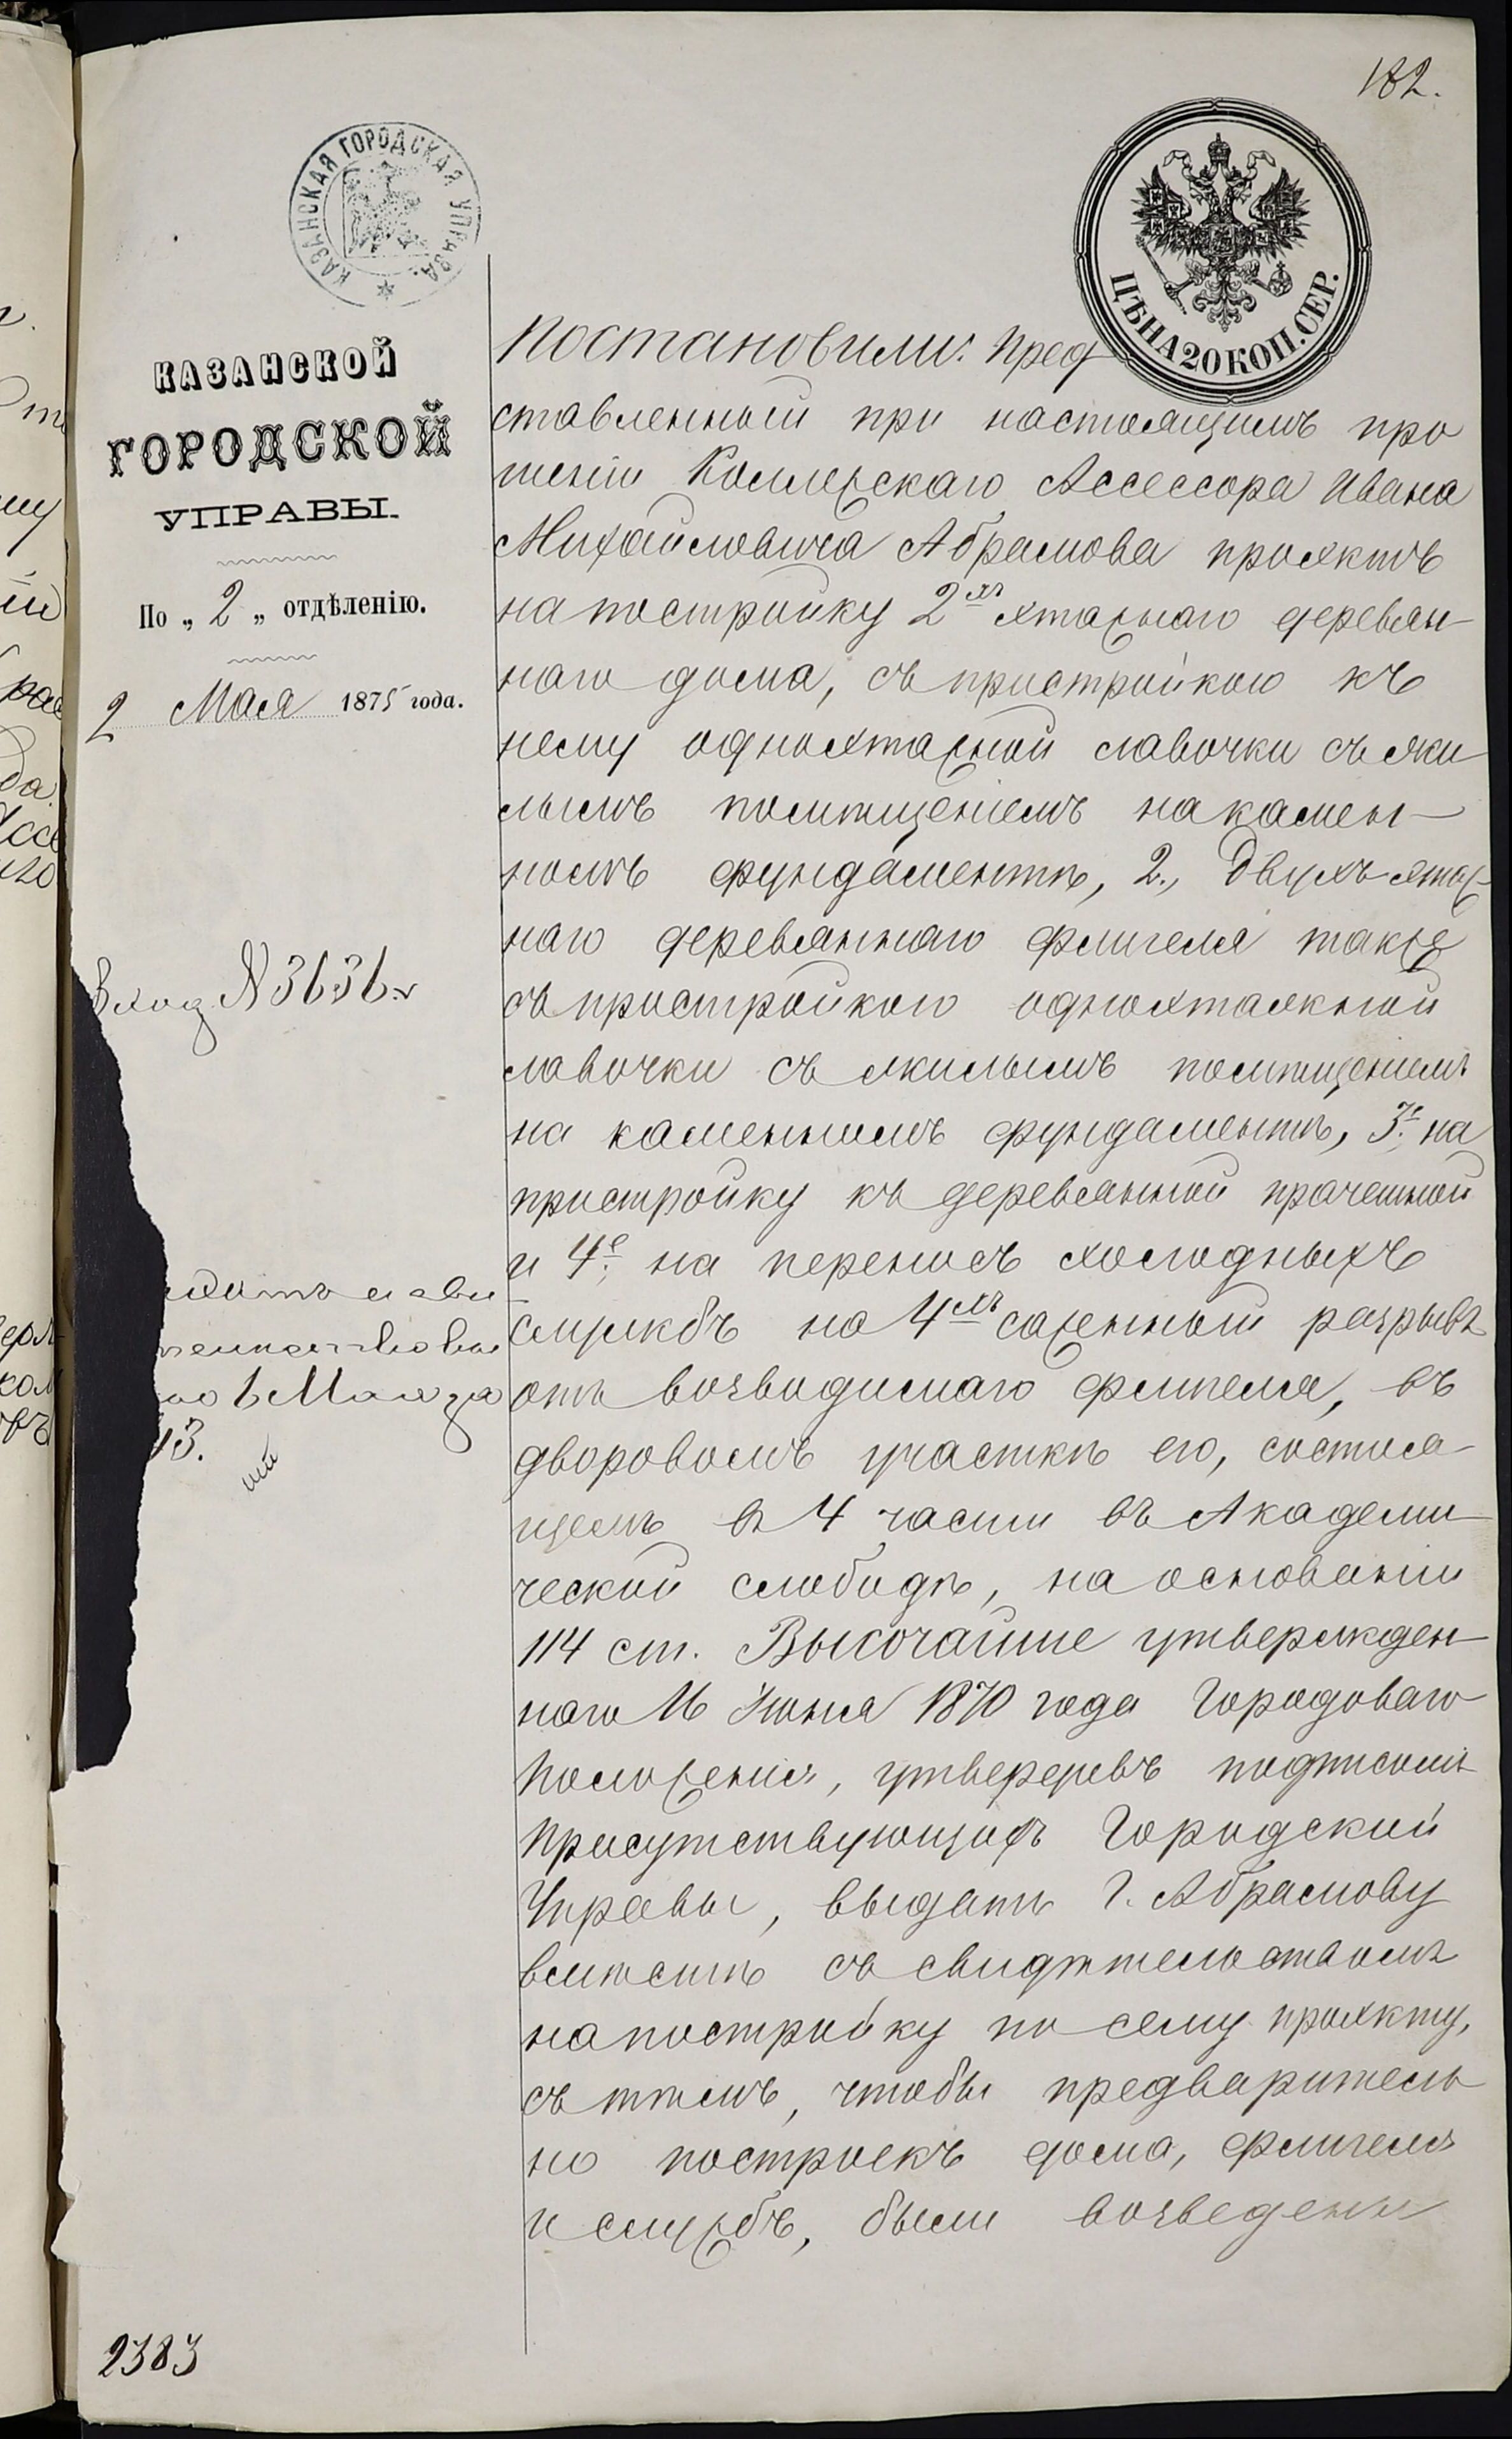 182.
КАЗАНСКАЯ ГОРОДСКАЯ УПРАВА.
ЦѢНА 20 КОП. СЕР.
КАЗАНСКОЙ
ГОРОДСКОЙ
УПРАВЫ.
По „ 2 „ отдѣленію.
2 Мая 1875 года.
Вход N 3636
но 6 Мая за
13.
2383
Постановили: Пред
ставленный при настоящимъ про
шеніи Коллежскаго Ассессора Ивана
Михайловича Абрамова проэктъ
на постройку 2хъ этажнаго деревян-
наго дома, съ пристройкою къ
нему одноэтажной лавочки съ жи
лымъ помѣщеніемъ на камен-
номъ фундаментѣ, 2., Двухъ-этаж-
наго деревяннаго флигеля также
съ пристройкою одноэтажной
лавочки съ жилымъ помѣщеніемъ
на каменномъ фундаментѣ, 3е на
пристройку къ деревянной прачешной
и 4е; на переносъ холодныхъ
службъ на 4хъ саженный разрывъ
отъ возводимаго флигеля, въ
дворовомъ участкѣ его, состоя-
щемъ въ 4 части въ Академи-
ческой слободѣ, на основаніи
114 ст. Высочайше утвержден-
наго 16 Іюня 1870 года Городоваго
Положенія, утвердивъ подписомъ
Присутствующихъ Городской
Управы, выдать Г. Абрамову
вмѣстѣ съ свидѣтельствомъ
на постройку по сему проэкту,
съ тѣмъ, чтобы предваритель
но построекъ дома, флигеля
и службъ, были возведены